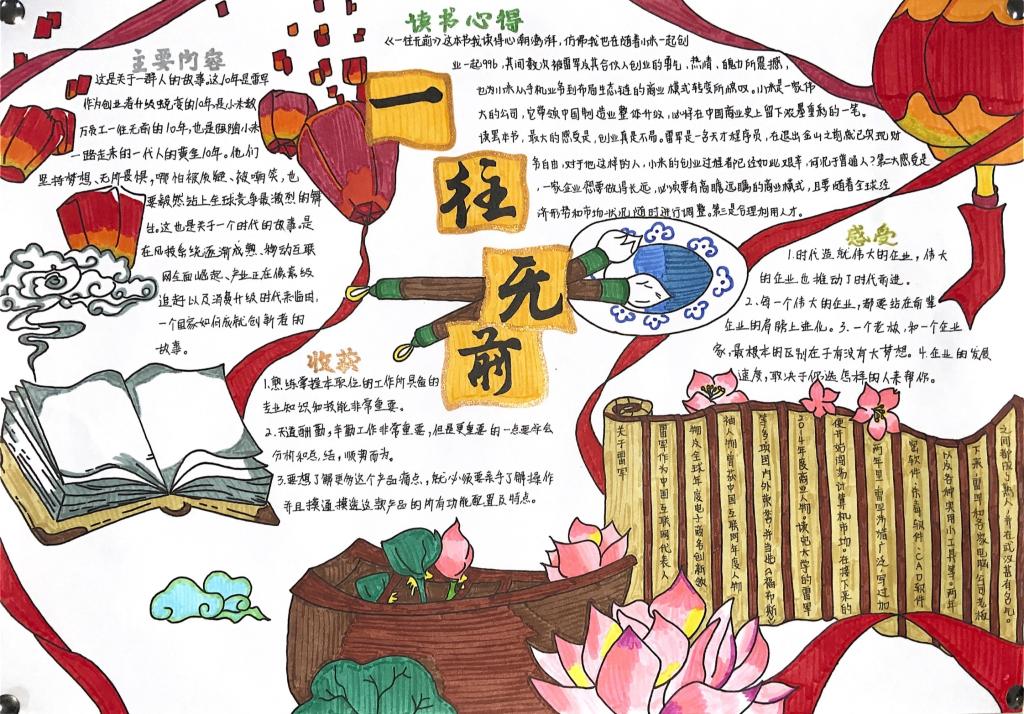 读书心得
《一往无前》这本书我读得心潮澎湃，仿佛我也在随着小米一起创
业一起996，其间数次被雷军及其合伙人创业的勇气、热情、魄力所震撼，
也为小米从手机业务到布局生态链的商业模式转变所
大的公司，它带领中国制造业整体升级，必将在中国商业史上留下浓墨重彩的一笔。
读罢本书，最大的感受是，创业真是不易。雷军是一名天才程序员，在退出金山之前就已实现财
务自由，对于他这样的人，小米的创业过程都已经如此艰辛，何况于普通人？第二大感受是
一家企业想要做得长远，必须要有高瞻远瞩的商业模式，且要随着全球经
济形势和市场状况，随时进行调整。第三是合理利用人才。
主要内容
这是关于一群人的故事。这10年是雷军
作为创业者升级蜕变的10年，是小米数
万员工一往无前的10年，也是跟随小米
一路走来的一代人的黄金10年。他们
坚持梦想、无所畏惧，哪怕被质疑、被嘲笑，也
要毅然站上全球竞争最激烈的舞
台。这也是关于一个时代的故事。是
在风投系统逐渐成熟、移动互联
网全面崛起、产业正在像素级
追赶以及消费升级时代来临时，
一个国家如何成就创新者的
故事。
一
往
无
前
感受
1.时代造就伟大的企业，伟大
的企业也推动了时代前进。
2.每一个伟大的企业，都要站在前辈
企业的肩膀上进化。3.一个老板，和一个企业
家，最根本的区别在于有没有大梦想。4.企业的发展
速度，取决于你选怎样的人来帮你。
收获
1.熟练掌握本职位的工作所具备的
专业知识和技能非常重要。
2.天道酬勤，辛勤工作非常重要，但是更重要的一点要学会
分析如总结，顺势而为。
3.要想了解更物这个产品痛点，就必须要亲手了解操作
并且摸通摸透这款产品的所有功能配置及特点。
关于雷军
雷军作为中国互联网代表人
物及全球年度电子商务创新领
袖人物，曾获中国互联网年度人物
等多项国内外荣誉，并当选《福布斯》
2014年度商业人物。读完大学的雷军
便开始闯荡计算机市场。在接下来的
两年里，雷军涉猎广泛，写过加
密软件、杀毒软件、CAD软件
以及各种实用小工具等。两年
下来，雷军和各家电脑公司老板
之间都成了熟人，并在武汉甚有名气。